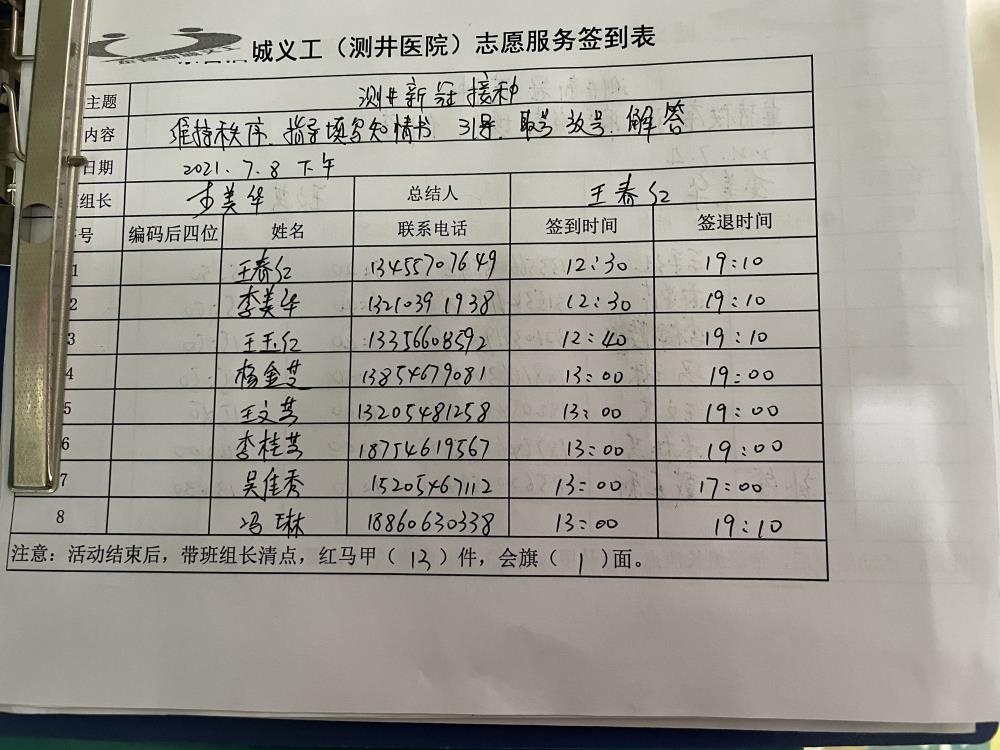 城义工（测井医院）志愿服务签到表
主题 测井新冠接种
内容 维持秩序、指导填写知情书 引导、取号 放号、解答
日期 2021.7.8 下午
组长 李美华 总结人 王春红
号 编码后四位 姓名 联系电话 签到时间 签退时间
1 王春红 13455707649 12:30 19:10
2 李美华 13210391938 12:30 19:10
3 王玉红 13356608592 12:40 19:10
4 杨金芝 13854679081 13:00 19:00
5 王文芳 13205481258 13:00 19:00
6 李桂芳 18754619567 13:00 19:00
7 吴佳秀 15205467112 13:00 17:00
8 冯琳 18860630338 13:00 19:10
注意：活动结束后，带班组长清点，红马甲（13）件，会旗（1）面。